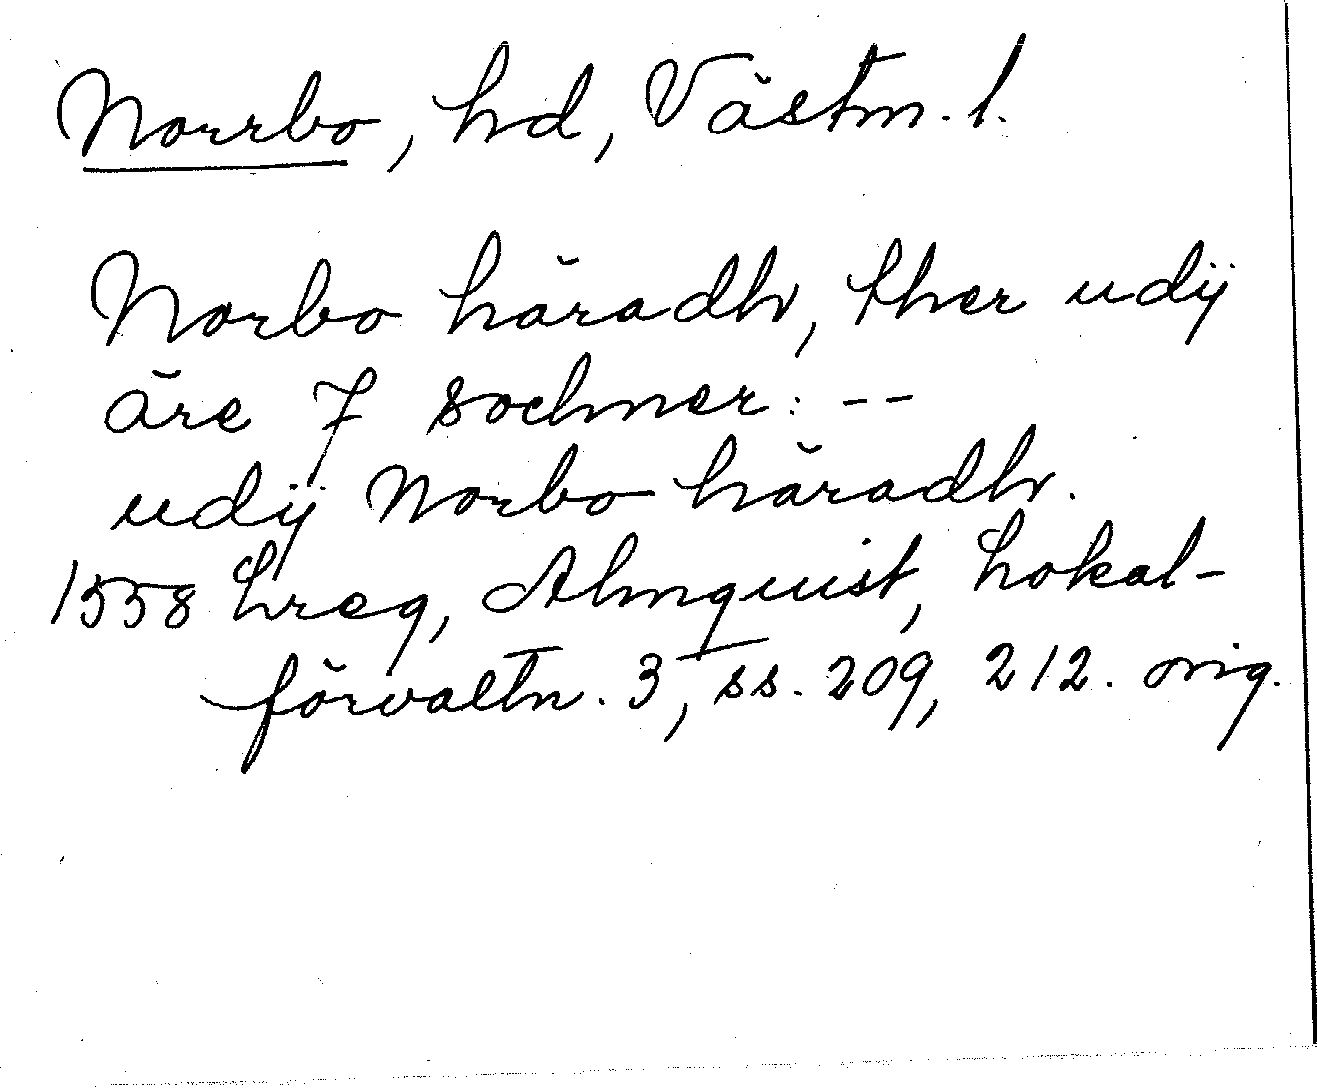 Norrbo, hd, Västm. l.
Norbo häradh, ther udij
äre 7 sochner: --
udij Norbo häradh.
1558 Lreg, Almquist, Lokal-
förvaltn. 3, ss. 209, 212. orig.